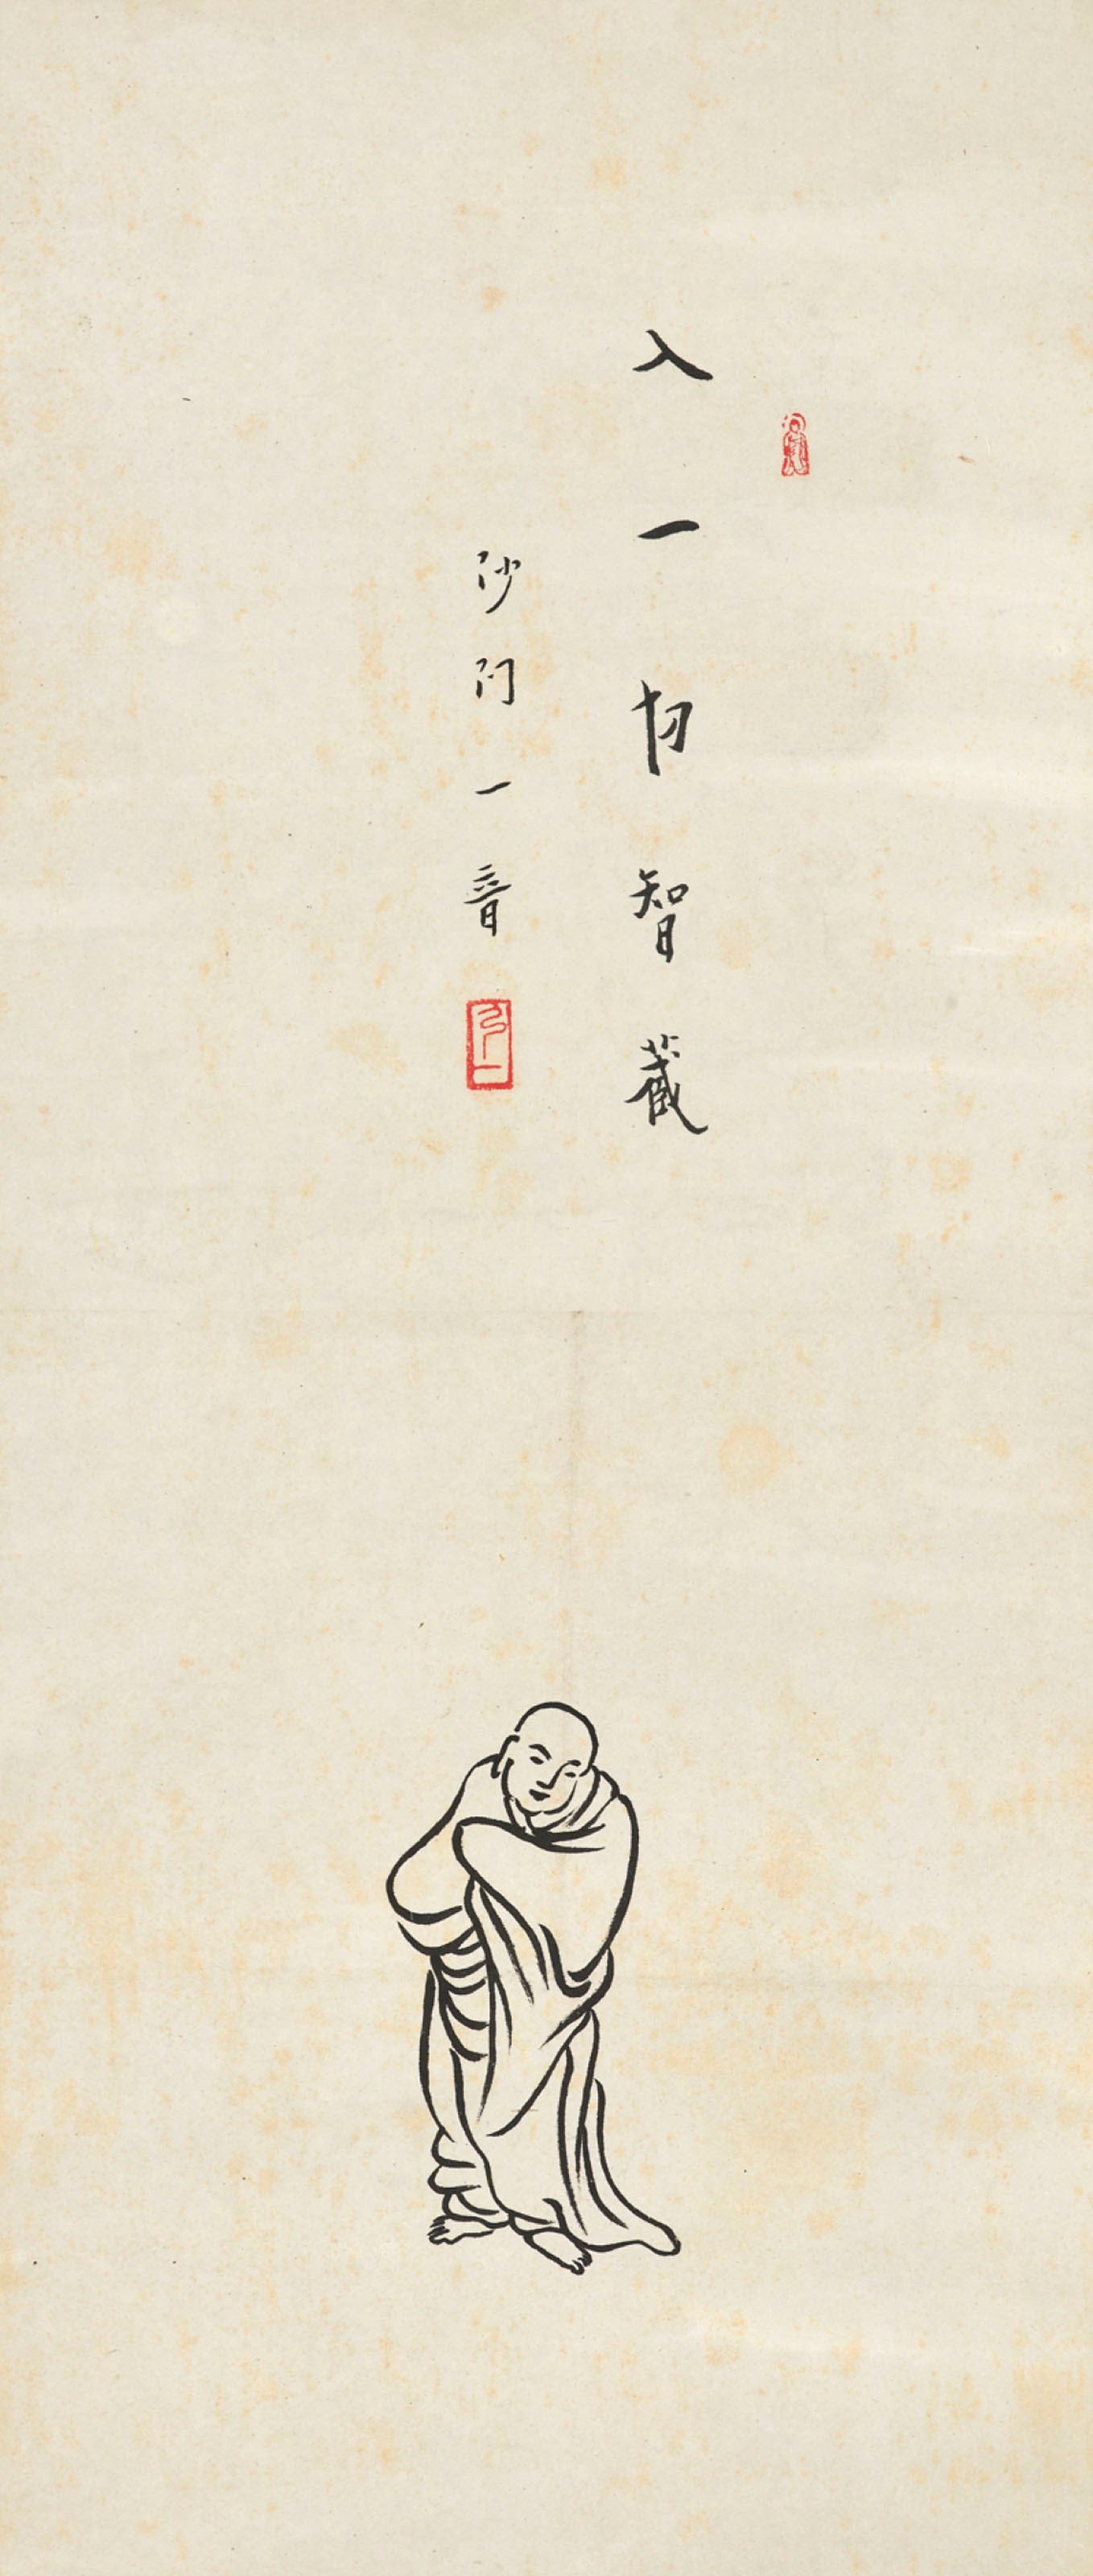 入一切智藏
沙門一音
弘一